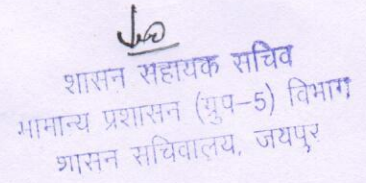 शासन सहायक सचिव
सामान्य प्रशासन (ग्रुप-5) विभाग
शासन सचिवालय, जयपुर